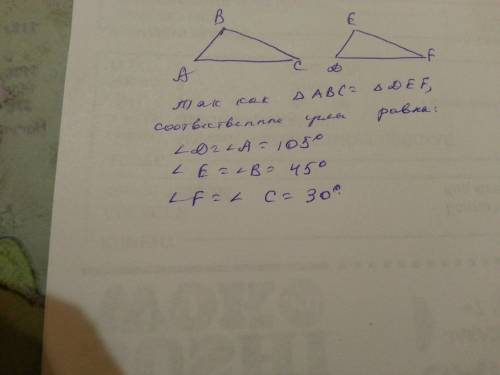 B
E
A
C
D
F
Так как △ABC = △DEF,
соотвественные углы равны:
∠D=∠A = 105°
∠E=∠B= 45°
∠F=∠ C=30°